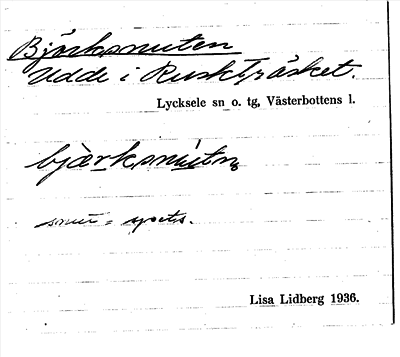 Björksnuten
Udde i Ruskträsket.
Lycksele sn o. tg, Västerbottens l.
bjàrksnùtn
snut = spets.
Lisa Lidberg 1936.